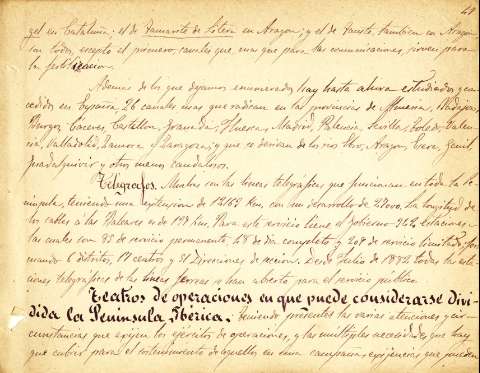 49
gel en Cataluña; el de Tamarite de Litera en Aragon; y el de Tauste, tambien en Aragon
son todos, escepto el primero, canales que, mas que para las comunicaciones, sirven para
la fertilizacion.
Además de los que dejamos enumerados hay hasta ahora estudiados y con-
cedidos en España, 26 canales mas que radican en las provincias de Almeria, Badajoz,
Burgos, Cáceres, Castellon, Granada, Huesca, Madrid, Palencia, Sevilla, Toledo, Valen-
cia, Valladolid, Zamora y Zaragoza; y que se derivan de los rios Ebro, Aragon, Genil,
Guadalquivir y otros menos caudalosos.
Telégrafos. Muchas son las lineas telegráficas que funcionan en toda la Pe-
ninsula, teniendo una estension de Km, con un desarrollo de La longitud de
los cables á las Baleares es de Km. Para este servicio tiene el Gobierno estaciones
las cuales son de servicio permanente, de dia completo y de servicio limitado, for-
mando 6 distritos, centros y Direcciones de seccion. Desde Julio de todas las esta-
ciones telegráficas de las lineas ferreas se han abierto para el servicio público.
Teatros de operaciones en que puede considerarse divi-
dida la Peninsula Ibérica. Teniendo presentes las varias atenciones y cir-
cunstancias que exijen los ejércitos de operaciones, y las multiples necesidades que hay
que cubrir para el sostenimiento de aquellos en una campaña, exijencias que pueden